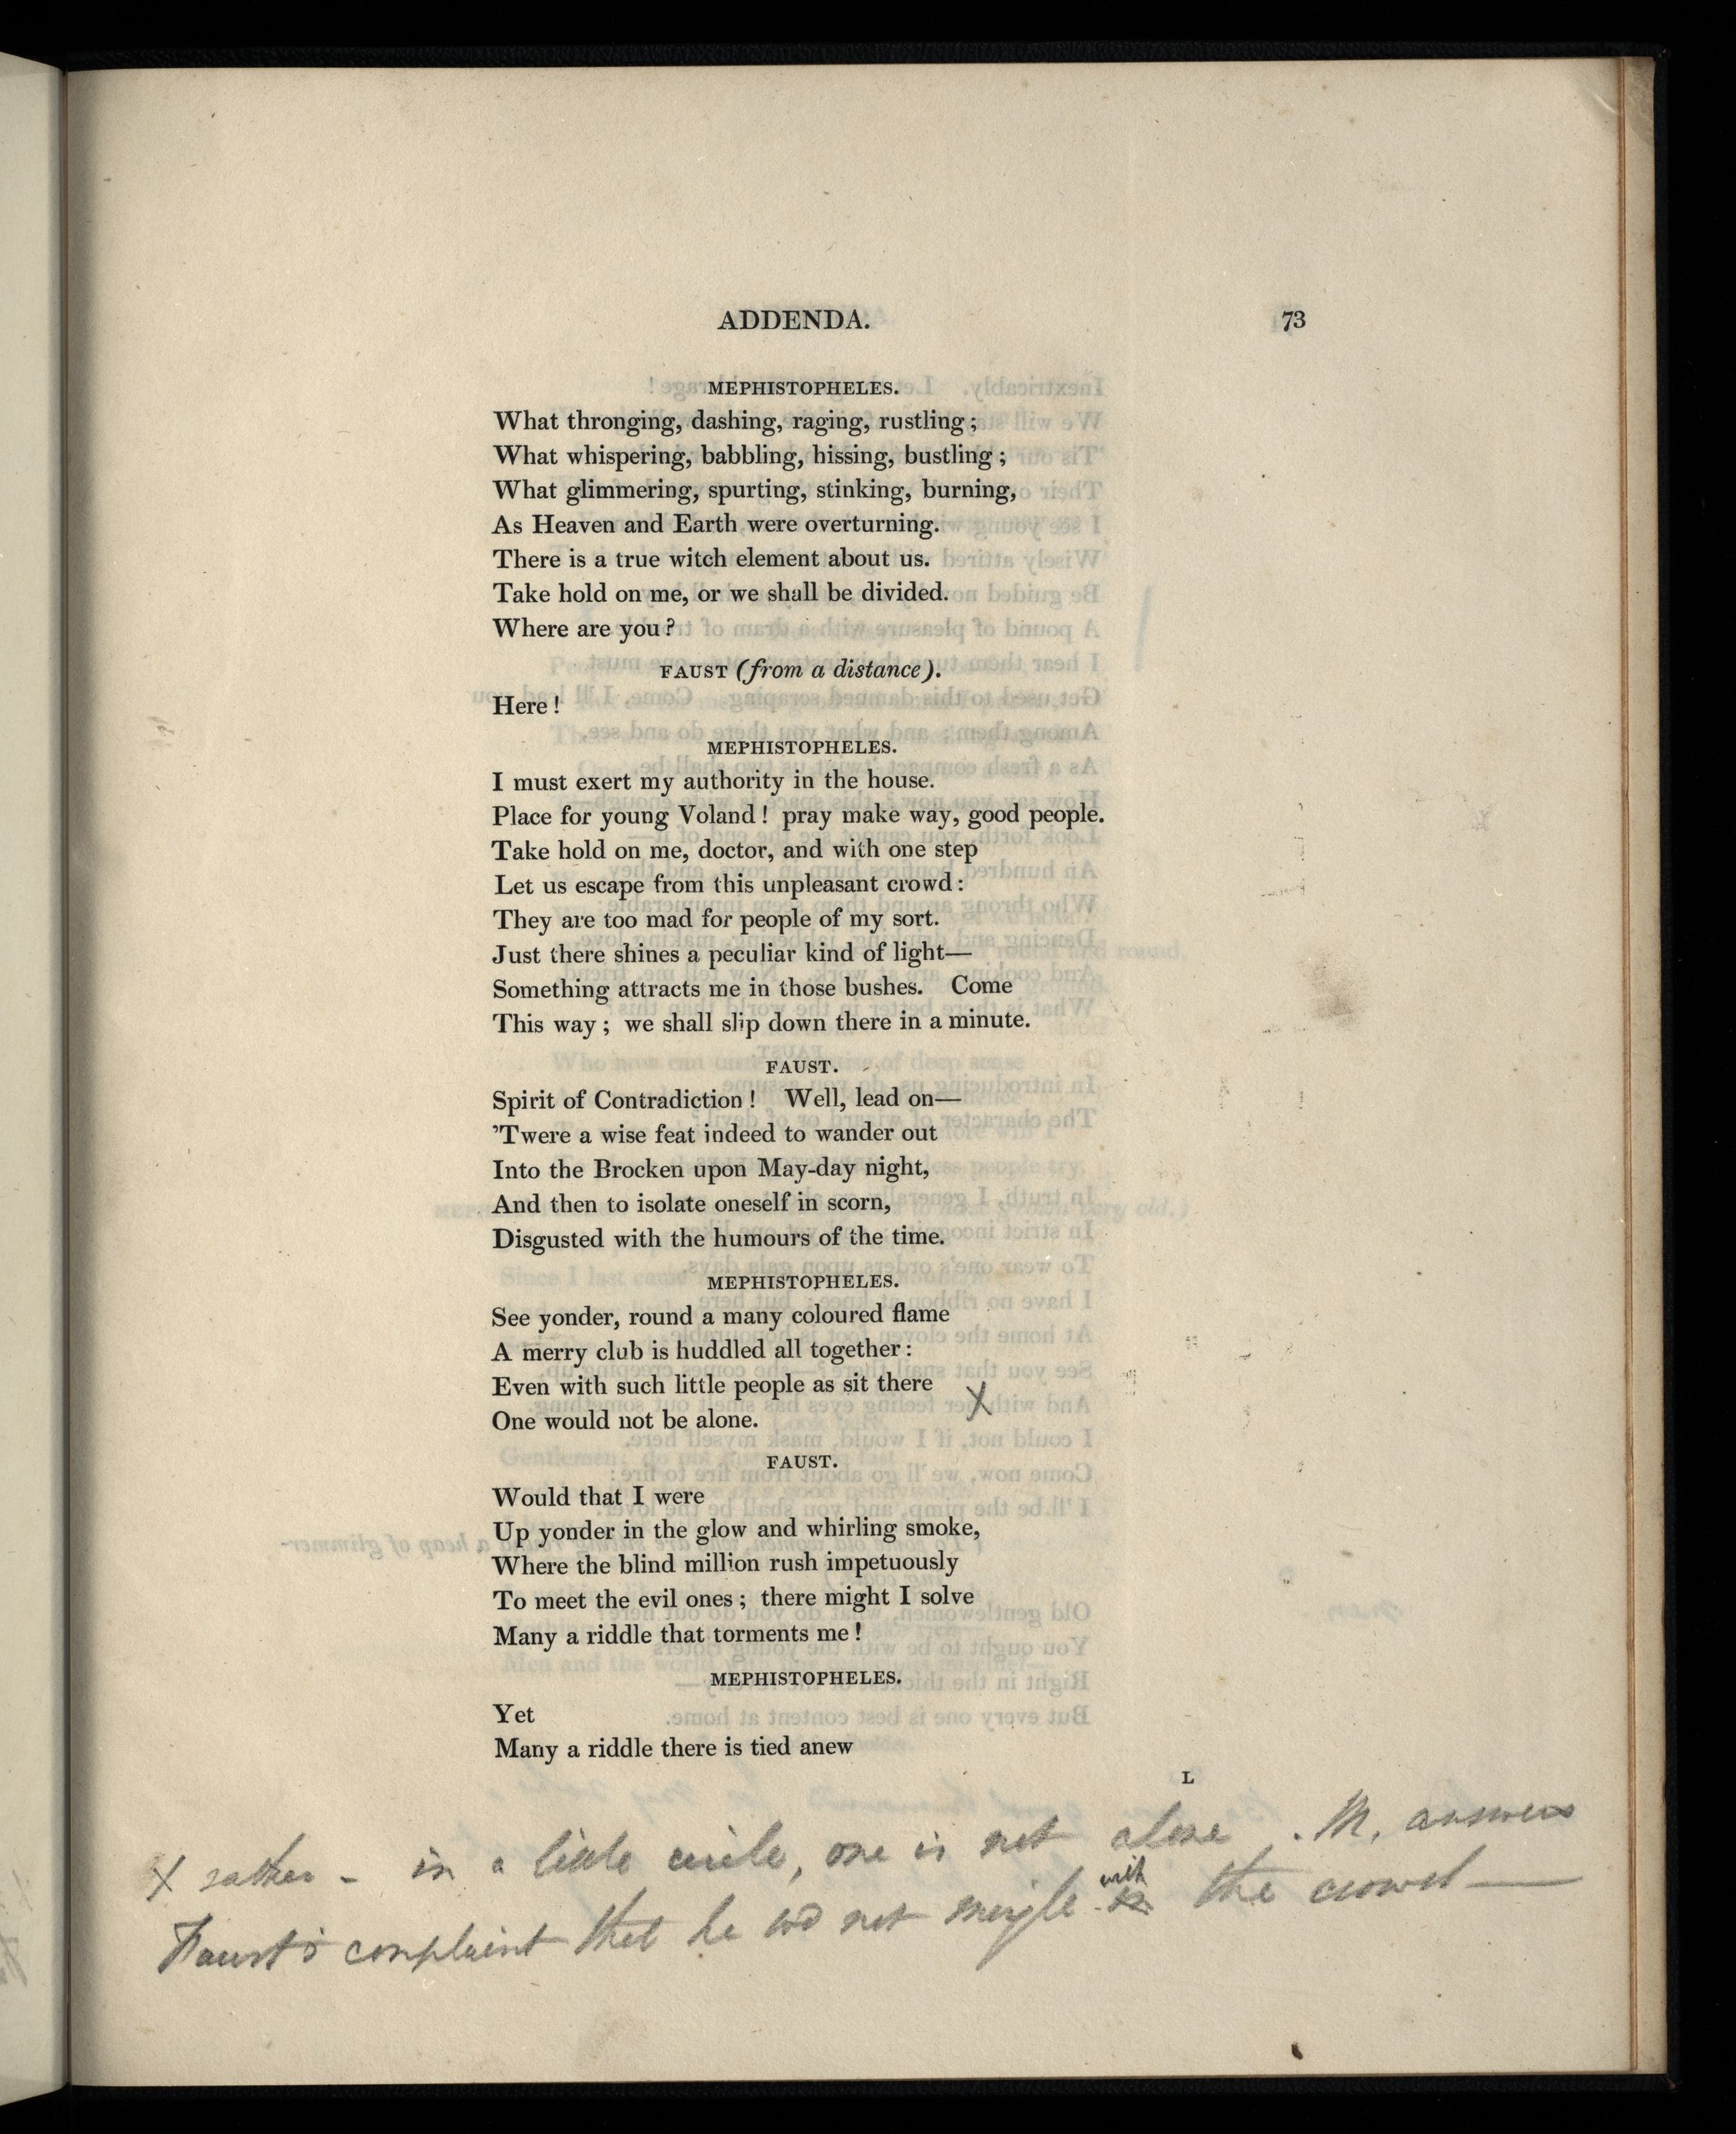 ADDENDA. 73
MEPHISTOPHELES.
What thronging, dashing, raging, rustling ;
What whispering, babbling, hissing, bustling ;
What glimmering, spurting, stinking, burning,
As Heaven and Earth were overturning.
There is a true witch element about us.
Take hold on me, or we shall be divided.
Where are you ?
FAUST (from a distance).
Here !
MEPHISTOPHELES.
I must exert my authority in the house.
Place for young Voland ! pray make way, good people.
Take hold on me, doctor, and with one step
Let us escape from this unpleasant crowd :
They are too mad for people of my sort.
Just there shines a peculiar kind of light—
Something attracts me in those bushes. Come
This way ; we shall slip down there in a minute.
FAUST.
Spirit of Contradiction ! Well, lead on—
’Twere a wise feat indeed to wander out
Into the Brocken upon May-day night,
And then to isolate oneself in scorn,
Disgusted with the humours of the time.
MEPHISTOPHELES.
See yonder, round a many coloured flame
A merry club is huddled all together :
Even with such little people as sit there X
One would not be alone.
FAUST.
Would that I were
Up yonder in the glow and whirling smoke,
Where the blind million rush impetuously
To meet the evil ones ; there might I solve
Many a riddle that torments me !
MEPHISTOPHELES.
Yet
Many a riddle there is tied anew
L
X rather - in a little circle, one is not alone. M. answers
Faust's complaint that he wd not mingle with the crowd —